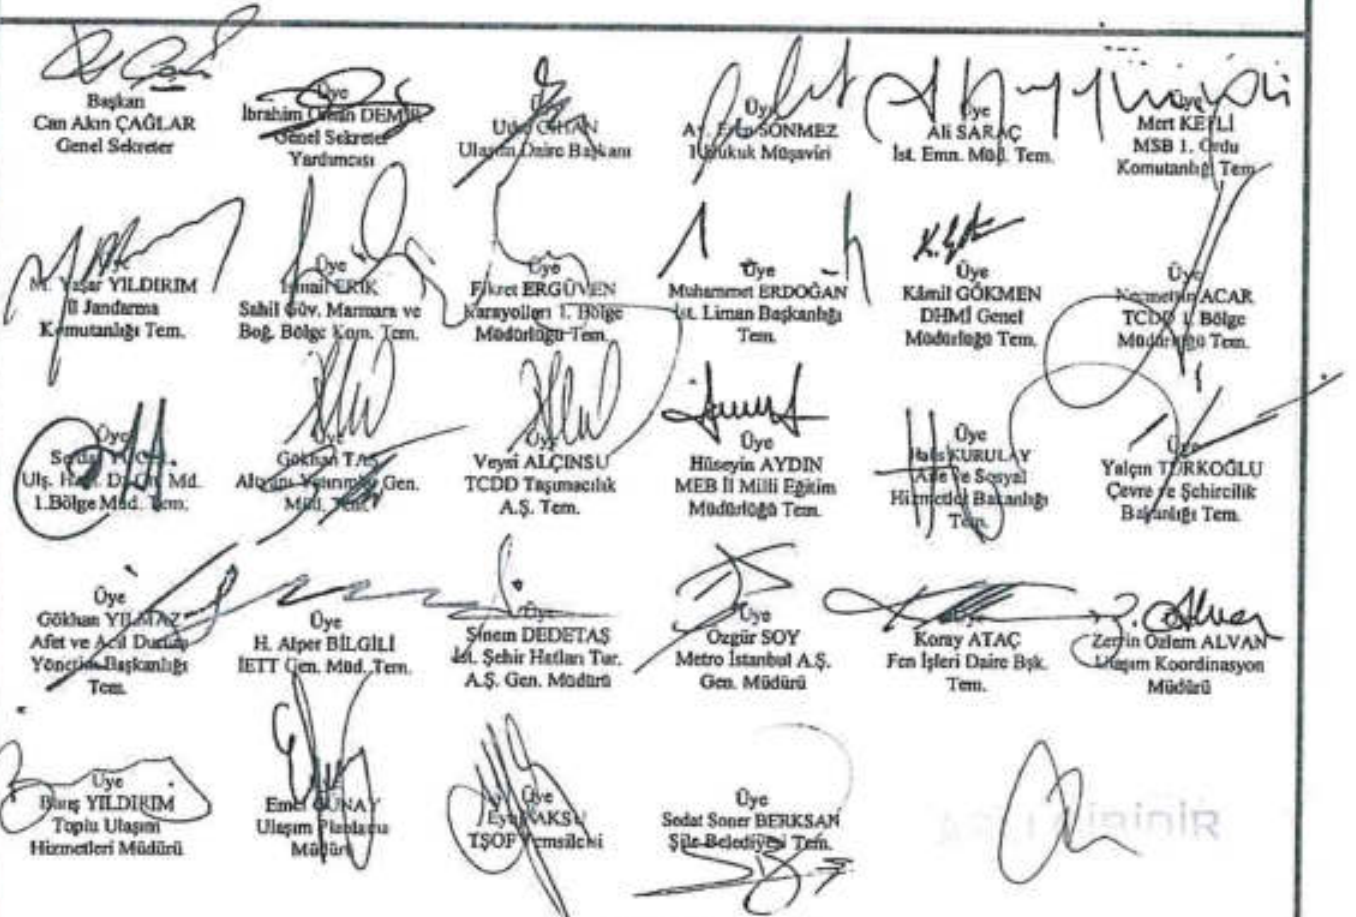 Başkan
Can Akın ÇAĞLAR
Genel Sekreter
Üye
İbrahim Orhan DEMİR
Genel Sekreter
Yardımcısı
Ü
CİHAN
Ulaşım Daire Başkanı
Üye
Av. Eren SÖNMEZ
1. Hukuk Müşaviri
Üye
Ali SARAÇ
İst. Emn. Müd. Tem.
Üye
Mert KEFLİ
MSB 1. Ordu
Komutanlığı Tem.
M. Yaşar YILDIRIM
İl Jandarma
Komutanlığı Tem.
Üye
İsmail ERİK
Sahil Güv. Marmara ve
Boğ. Bölge Kom. Tem.
Üye
Fikret ERGÜVEN
Karayolları 1. Bölge
Müdürlüğü Tem.
Üye
Muhammet ERDOĞAN
İst. Liman Başkanlığı
Tem.
K. Gökmen
Üye
Kâmil GÖKMEN
DHMİ Genel
Müdürlüğü Tem.
Üye
Necmettin ACAR
TCDD 1. Bölge
Müdürlüğü Tem.
Üye
Serdar
Ulş. Md.
1.Bölge Müd. Tem.
Üye
Gökhan TAŞ
Altyapı Yatırımları Gen.
Müd. Tem.
Üye
Veysi ALÇINSU
TCDD Taşımacılık
A.Ş. Tem.
Üye
Hüseyin AYDIN
MEB İl Milli Eğitim
Müdürlüğü Tem.
Üye
Halis KURULAY
Aile ve Sosyal
Hizmetler Bakanlığı
Tem.
Üye
Yalçın TÜRKOĞLU
Çevre ve Şehircilik
Bakanlığı Tem.
Üye
Gökhan YILMAZ
Afet ve Acil Durum
Yönetim Başkanlığı
Tem.
Üye
H. Alper BİLGİLİ
İETT Gen. Müd. Tem.
Üye
Sinem DEDETAŞ
İst. Şehir Hatları Tur.
A.Ş. Gen. Müdürü
Üye
Özgür SOY
Metro İstanbul A.Ş.
Gen. Müdürü
Koray ATAÇ
Fen İşleri Daire Bşk.
Tem.
Z. Alvan
Zerrin Özlem ALVAN
Ulaşım Koordinasyon
Müdürü
Üye
Barış YILDIRIM
Toplu Ulaşım
Hizmetleri Müdürü
Emel GÜNAY
Ulaşım Planlama
Müdürü
Üye
Eyüp AKSU
TŞOF Temsilcisi
Üye
Sedat Soner BERKSAN
Şile Belediyesi Tem.